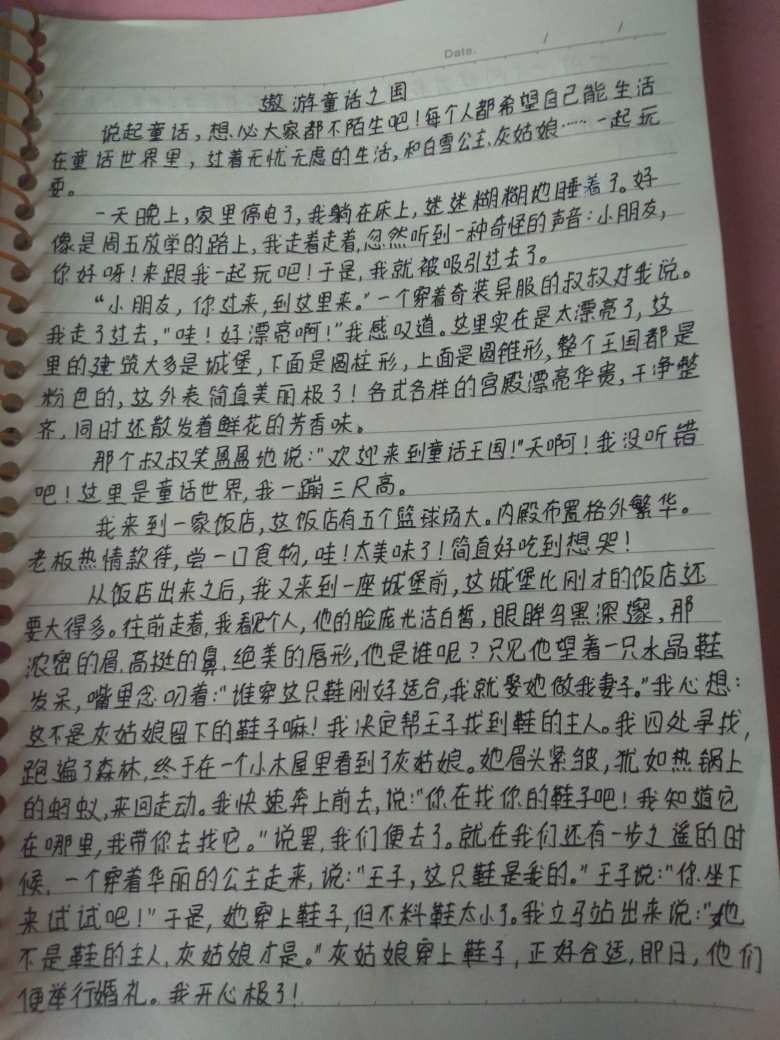 Date. / /
遨游童话之国
说起童话，想必大家都不陌生吧！每个人都希望自己能生活
在童话世界里，过着无忧无虑的生活，和白雪公主、灰姑娘……一起玩
耍。
一天晚上，家里停电了，我躺在床上，迷迷糊糊地睡着了。好
像是周五放学的路上，我走着走着，忽然听到一种奇怪的声音：小朋友，
你好呀！来跟我一起玩吧！于是，我就被吸引过去了。
“小朋友，你过来，到这里来。”一个穿着奇装异服的叔叔对我说。
我走了过去，“哇！好漂亮啊！”我感叹道。这里实在是太漂亮了，这
里的建筑大多是城堡，下面是圆柱形，上面是圆锥形，整个王国都是
粉色的，这外表简直美丽极了！各式各样的宫殿漂亮华贵，干净整
齐，同时还散发着鲜花的芳香味。
那个叔叔笑盈盈地说：“欢迎来到童话王国！”天啊！我没听错
吧！这里是童话世界，我一蹦三尺高。
我来到一家饭店，这饭店有五个篮球场大。内殿布置格外繁华。
老板热情款待，尝一口食物，哇！太美味了！简直好吃到想哭！
从饭店出来之后，我又来到一座城堡前，这城堡比刚才的饭店还
要大得多。往前走着，我看见个人，他的脸庞光洁白皙，眼眸乌黑深邃，那
浓密的眉，高挺的鼻，绝美的唇形，他是谁呢？只见他望着一只水晶鞋
发呆，嘴里念叨着：“谁穿这只鞋刚好适合，我就娶她做我妻子。”我心想：
这不是灰姑娘留下的鞋子嘛！我决定帮王子找到鞋的主人。我四处寻找，
跑遍了森林，终于在一个小木屋里看到了灰姑娘。她眉头紧皱，犹如热锅上
的蚂蚁，来回走动。我快速奔上前去，说：“你在找你的鞋子吧！我知道它
在哪里，我带你去找它。”说罢，我们便去了。就在我们还有一步之遥的时
候，一个穿着华丽的公主走来，说：“王子，这只鞋是我的。”王子说：“你坐下
来试试吧！”于是，她穿上鞋子，但不料鞋太小了。我立马站出来说：“她
不是鞋的主人，灰姑娘才是。”灰姑娘穿上鞋子，正好合适，即日，他们
便举行婚礼。我开心极了！